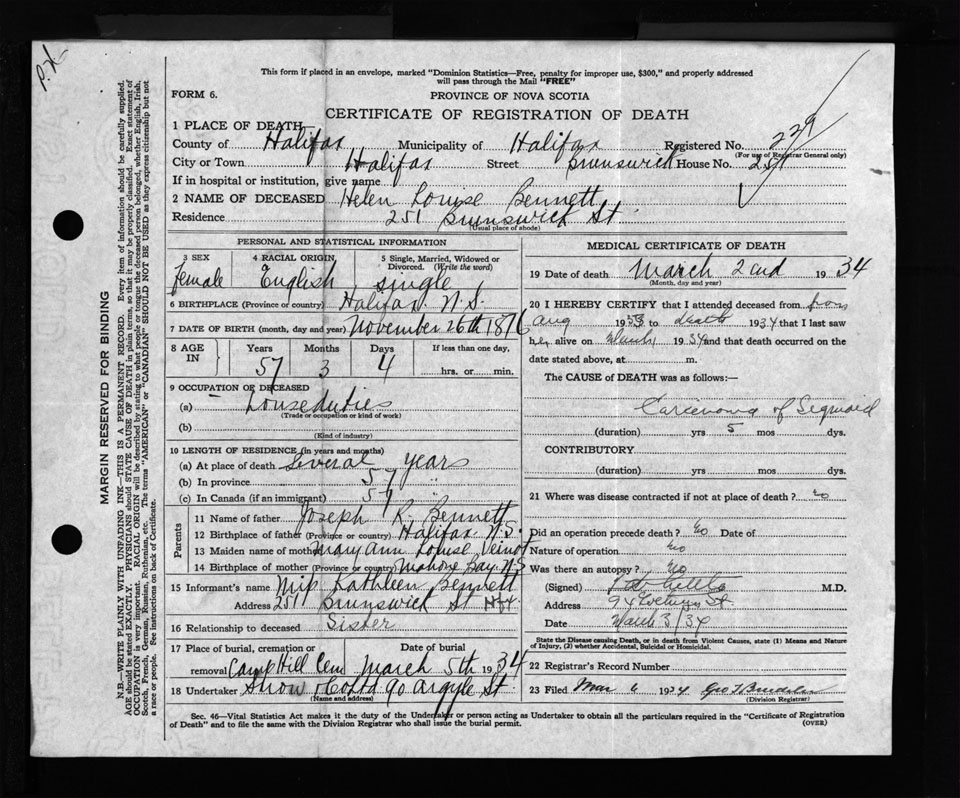 P.H.
This form if placed in an envelope, marked "Dominion Statistics—Free, penalty for improper use, $300," and properly addressed
will pass through the Mail "FREE"
FORM 6.
PROVINCE OF NOVA SCOTIA
CERTIFICATE OF REGISTRATION OF DEATH
1 PLACE OF DEATH—
County of Halifax Municipality of Halifax Registered No. 229
(For use of Registrar General only)
City or Town Halifax Street Brunswick House No. 251
If in hospital or institution, give name
2 NAME OF DECEASED Helen Louise Bennett
Residence 251 Brunswick St.
(Usual place of abode)
PERSONAL AND STATISTICAL INFORMATION
3 SEX 4 RACIAL ORIGIN 5 Single, Married, Widowed or Divorced. (Write the word)
Female English single
6 BIRTHPLACE (Province or country) Halifax N.S.
7 DATE OF BIRTH (month, day and year) November 26th 1876
8 AGE IN Years Months Days If less than one day,
57 3 4 hrs. or min.
9 OCCUPATION OF DECEASED
(a) Houseduties
(Trade or occupation or kind of work)
(b)
(Kind of industry)
10 LENGTH OF RESIDENCE (in years and months)
(a) At place of death Several years
(b) In province 57 "
(c) In Canada (if an immigrant) 57 "
Parents
11 Name of father Joseph R. Bennett
12 Birthplace of father (Province or country) Halifax N.S.
13 Maiden name of mother Mary Ann Louise Veinot
14 Birthplace of mother (Province or country) Mahone Bay. N.S
15 Informant's name Miss Kathleen Bennett
Address 251 Brunswick St Hfx
16 Relationship to deceased Sister
17 Place of burial, cremation or Date of burial
removal Camp Hill Cem March 5th 1934
18 Undertaker Snow & Co Ltd 90 Argyle St.
(Name and address)
MEDICAL CERTIFICATE OF DEATH
19 Date of death March 2nd 1934
(Month, day and year)
20 I HEREBY CERTIFY that I attended deceased from from
Aug 1933 to death 1934 that I last saw
her alive on March 1934 and that death occurred on the
date stated above, at m.
The CAUSE of DEATH was as follows:—
Carcinoma of Sigmoid
(duration) yrs 5 mos dys.
CONTRIBUTORY
(duration) yrs mos dys.
21 Where was disease contracted if not at place of death? no
Did an operation precede death? no Date of
Nature of operation no
Was there an autopsy? no
(Signed) M.D.
Address St.
Date March 3/34
State the Disease causing Death, or in death from Violent Causes, state (1) Means and Nature
of Injury, (2) whether Accidental, Suicidal or Homicidal.
22 Registrar's Record Number
23 Filed Mar 6 1934 Geo
(Division Registrar)
Sec. 46—Vital Statistics Act makes it the duty of the Undertaker or person acting as Undertaker to obtain all the particulars required in the "Certificate of Registration
of Death" and to file the same with the Division Registrar who shall issue the burial permit. (OVER)
MARGIN RESERVED FOR BINDING
N.B.—WRITE PLAINLY WITH UNFADING INK—THIS IS A PERMANENT RECORD. Every item of information should be carefully supplied.
AGE should be stated EXACTLY. PHYSICIANS should STATE CAUSE OF DEATH in plain terms, so that it may be properly classified. Exact statement of
OCCUPATION is very important. RACIAL ORIGIN will be described by stating to what people or tongue the deceased person belonged, whether English, Irish,
Scotch, French, German, Russian, Ruthenian, etc. The terms "AMERICAN" or "CANADIAN" SHOULD NOT BE USED as they express citizenship but not
a race or people. See instructions on back of Certificate.